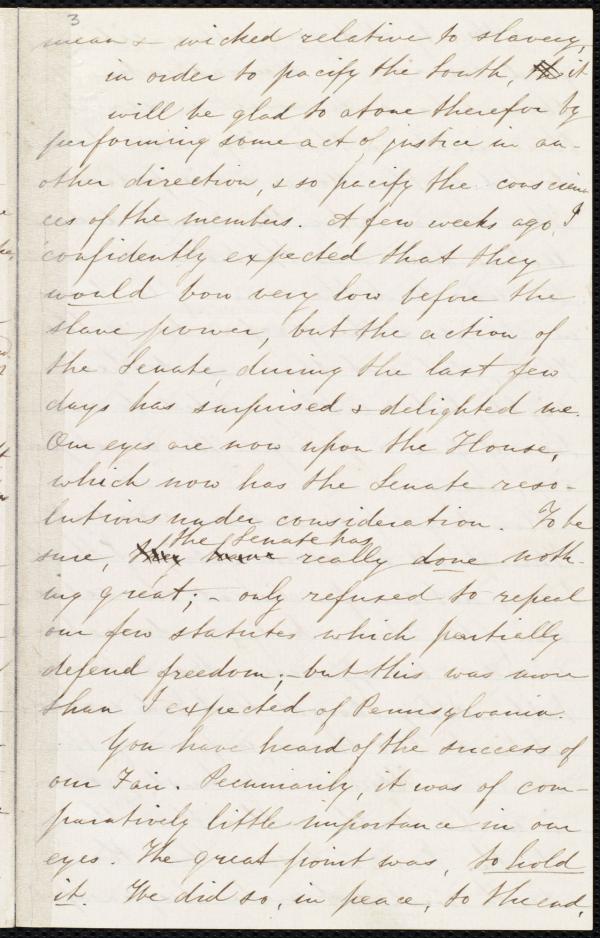 3
mean & wicked relative to slavery,
in order to pacify the South, it
will be glad to atone therefor by
performing some act of justice in an-
other direction, & so pacify the conscien
ces of the members. A few weeks ago, I
confidently expected that they
would bow very low before the
slave power, but the action of
the Senate, during the last few
days has surprised & delighted me.
Our eyes are now upon the House,
which now has the Senate reso-
lutions under consideration. To be
sure, the Senate has really done noth-
ing great; - only refused to repeal
our few statutes which partially
defend freedom; - but this was more
than I expected of Pennsylvania.
You have heard of the success of
our Fair. Pecuniarily, it was of com-
paratively little importance in our
eyes. The great point was, to hold
it. We did so, in peace, to the end,